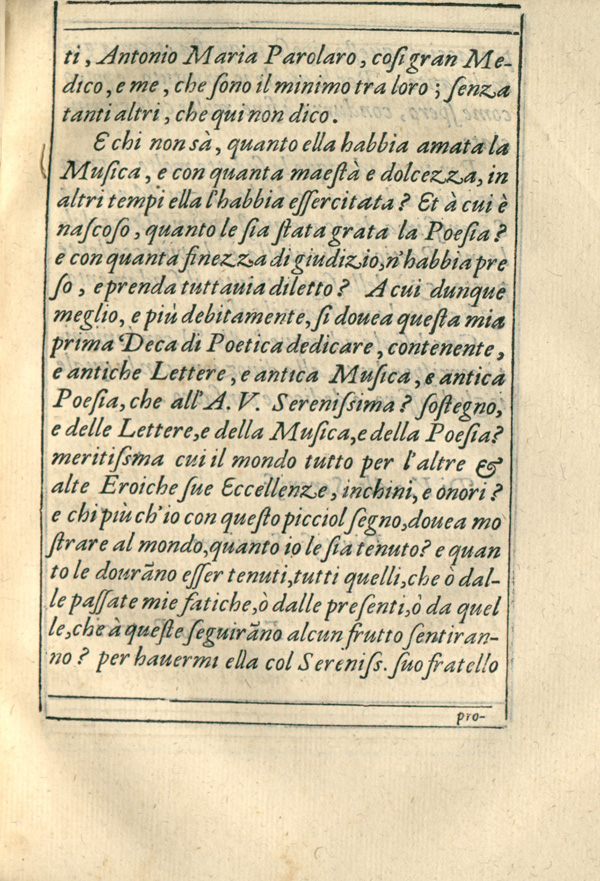 ti, Antonio Maria Parolaro, coſi gran Me-
dico, e me, che ſono il minimo tra loro; ſenza
tanti altri, che qui non dico.
E chi non sà, quanto ella habbia amata la
Muſica, e con quanta maeſtà e dolcezza, in
altri tempi ella l'habbia eſſercitata? Et à cui è
naſcoſo, quanto le ſia ſtata grata la Poeſia?
e con quanta finezza di giudizio, n'habbia pre
ſo, e prenda tuttauia diletto? A cui dunque
meglio, e più debitamente, ſi douea queſta mia
prima Deca di Poetica dedicare, contenente,
e antiche Lettere, e antica Muſica, e antica
Poeſia, che all'A. V. Sereniſsima? ſoſtegno,
e delle Lettere, e della Muſica, e della Poeſia?
meritiſsma cui il mondo tutto per l'altre &
alte Eroiche ſue Eccellenze, inchini, e onori?
e chi più ch'io con queſto picciol ſegno, douea mo
ſtrare al mondo, quanto io le ſia tenuto? e quan
to le dourãno eſſer tenuti, tutti quelli, che ò dal-
le paſſate mie fatiche, ò dalle preſenti, ò da quel
le, che à queſte ſeguirãno alcun frutto ſentiran-
no? per hauermi ella col Sereniſs. ſuo fratello
pro-